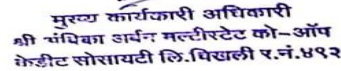 मुख्य कार्यकारी अधिकारी
श्री चंपिका अर्बन मल्टीस्टेट को-ऑप
क्रेडीट सोसायटी लि.चिखली र.नं.४९२